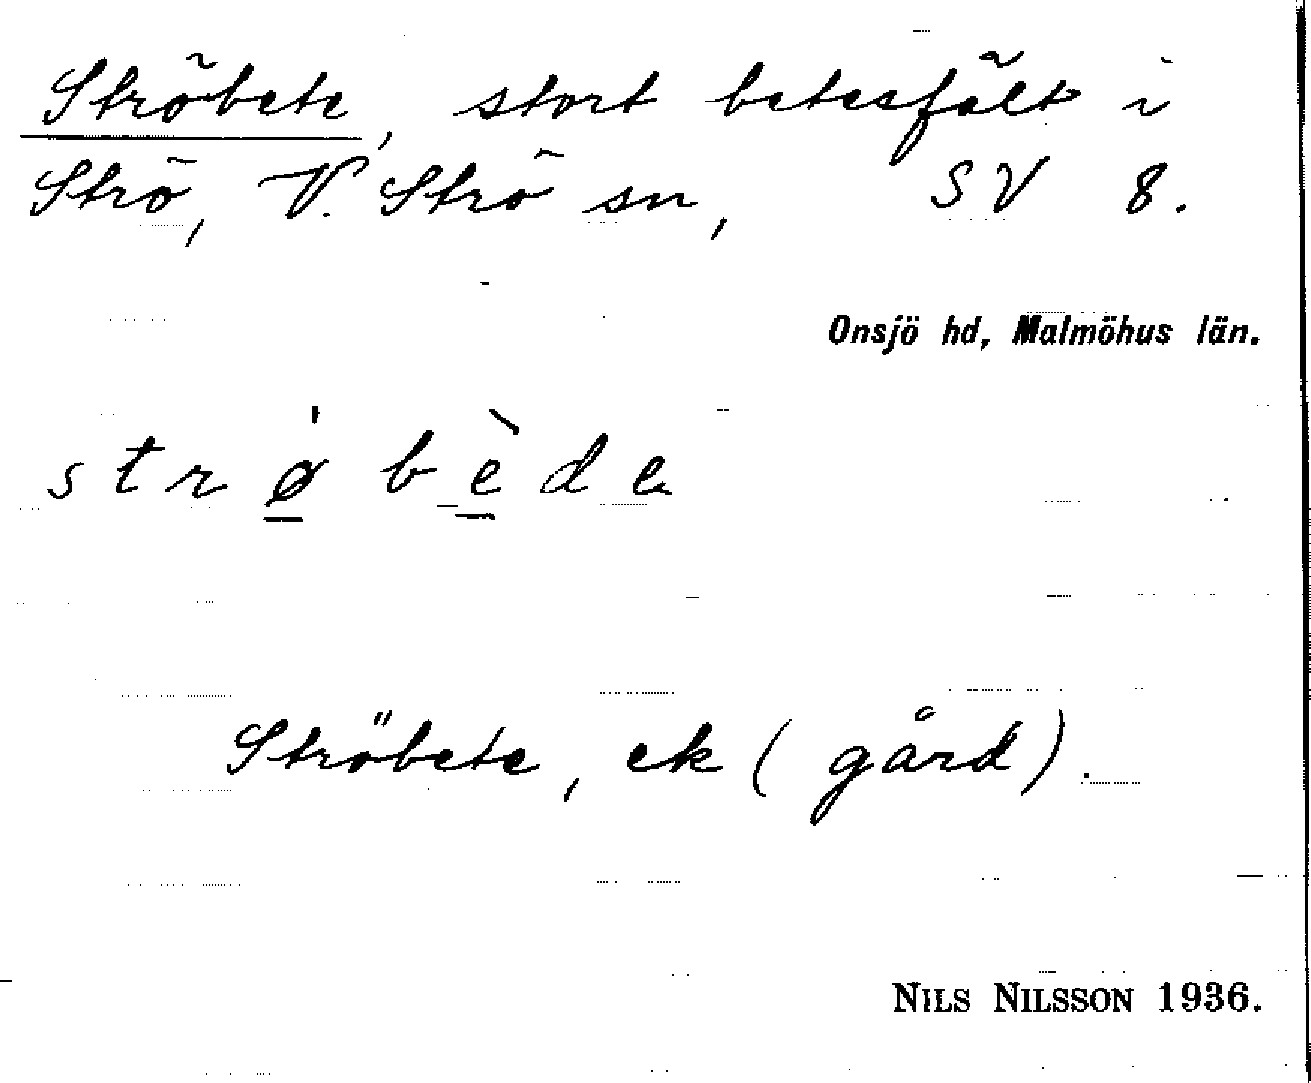 Ströbete, stort betesfält i
Strö, V. Strö sn, SV 8.
Onsjö hd, Malmöhus län.
strǿ̱bè̱de
Ströbete, ek (gård).
NILS NILSSON 1936.